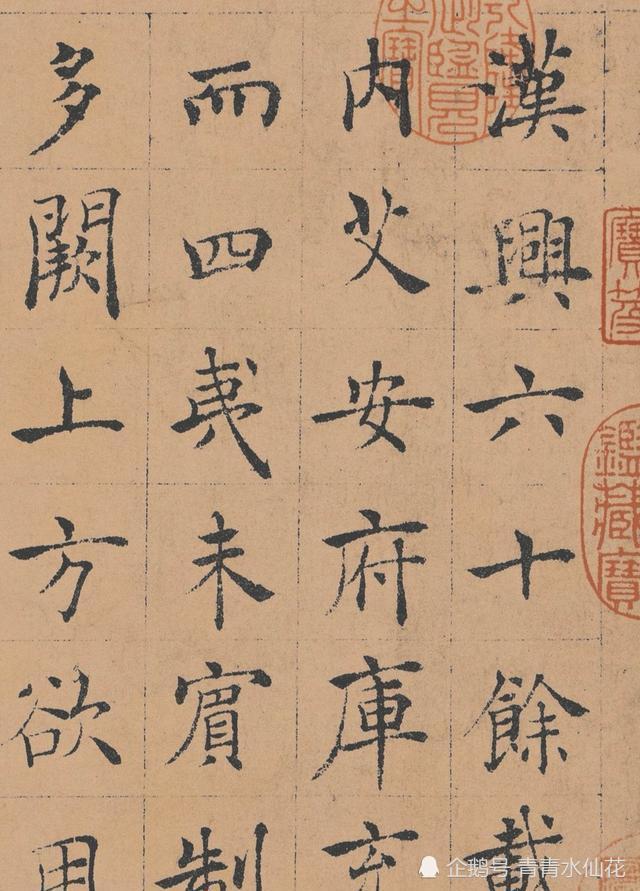 漢興六十餘載
内艾安府庫充
而四夷未賓制
多闕上方欲用
鑑藏寶
企鹅号 青青水仙花